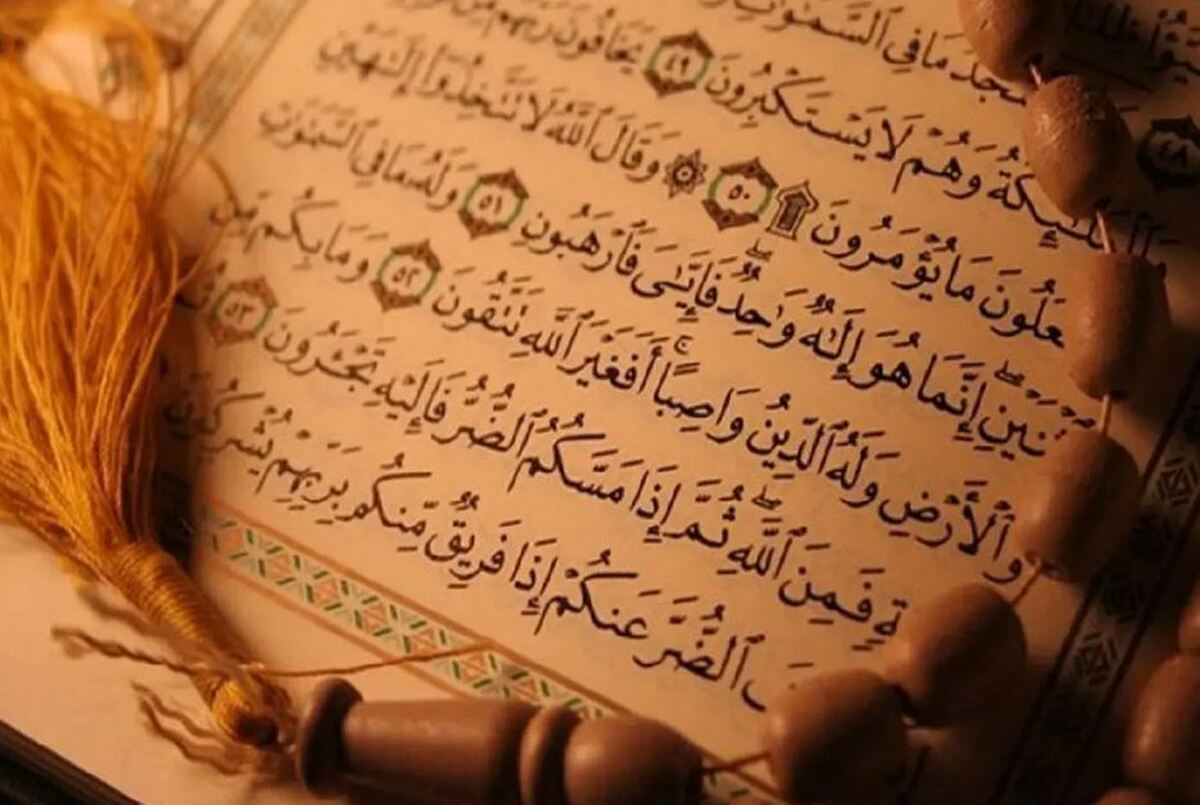 ٤٨
يَسْجُدُ مَا فِي ٱلسَّمَٰوَٰتِ
وَٱلْمَلَٰٓئِكَةُ وَهُمْ لَا يَسْتَكْبِرُونَ ٤٩ يَخَافُونَ رَبَّهُم مِّن
يَفْعَلُونَ مَا يُؤْمَرُونَ ۩ ٥٠ ۞ وَقَالَ ٱللَّهُ لَا تَتَّخِذُوٓا۟ إِلَٰهَيْنِ
ٱثْنَيْنِ ۖ إِنَّمَا هُوَ إِلَٰهٌ وَٰحِدٌ ۖ فَإِيَّٰيَ فَٱرْهَبُونِ ٥١ وَلَهُۥ مَا فِي ٱلسَّمَٰوَٰتِ
وَٱلْأَرْضِ وَلَهُ ٱلدِّينُ وَاصِبًا ۚ أَفَغَيْرَ ٱللَّهِ تَتَّقُونَ ٥٢ وَمَا بِكُم مِّن
ةٍ فَمِنَ ٱللَّهِ ۖ ثُمَّ إِذَا مَسَّكُمُ ٱلضُّرُّ فَإِلَيْهِ تَجْـَٔرُونَ ٥٣ ثُمَّ
ٱلضُّرَّ عَنكُمْ إِذَا فَرِيقٌ مِّنكُم بِرَبِّهِمْ يُشْرِكُونَ